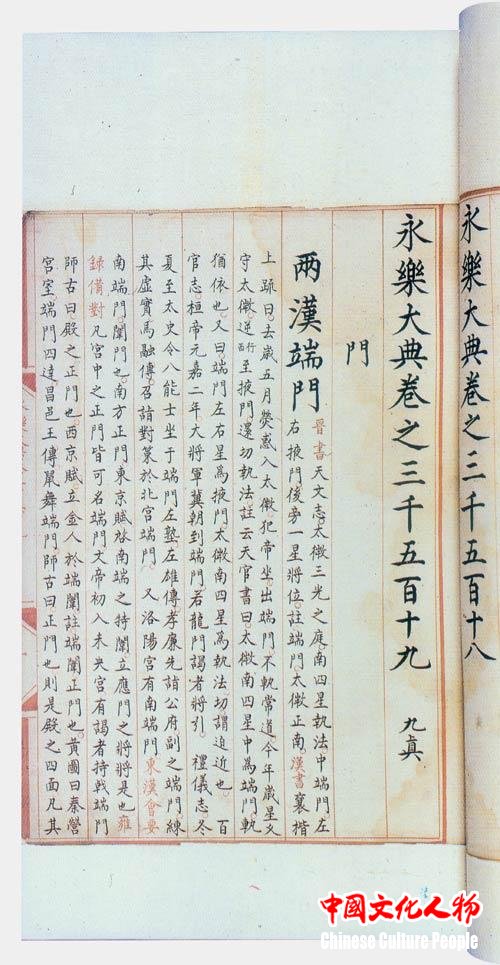 永樂大典卷之三千五百十八
永樂大典卷之三千五百十九 九真
門
兩漢端門 晉書天文志太微三光之庭南四星執法中端門左
右掖門後旁一星將位註端門太微正南漢書襄楷
上疏曰去歲五月熒惑入太微犯帝坐出端門不軌常道今年歲星久
守太微逆行西至掖門還切執法註云天官書曰太微南四星中為端門軌
猶依也又曰端門左右星為掖門太微南四星為執法切謂迫近也 百
官志桓帝元嘉二年大將軍冀朝到端門若龍門謁者將引 禮儀志冬
夏至太史令八能士坐于端門左塾左雄傳孝廉先詣公府副之端門練
其虛實馬融傳召詣對策於北宮端門 又洛陽宮有南端門東漢會要
南端門闈門也南方正門東京賦啟南端之特闈立應門之將將是也雍
錄備對凡宮中之正門皆可名端門文帝初入未央宮有謁者持戟端門
師古曰殿之正門也西京賦立金人於端闈註端闈正門也黃圖曰秦營
宮室端門四達昌邑王傳鼠舞端門師古曰正門也則是殿之四面凡其
中國文化人物
Chinese Culture People